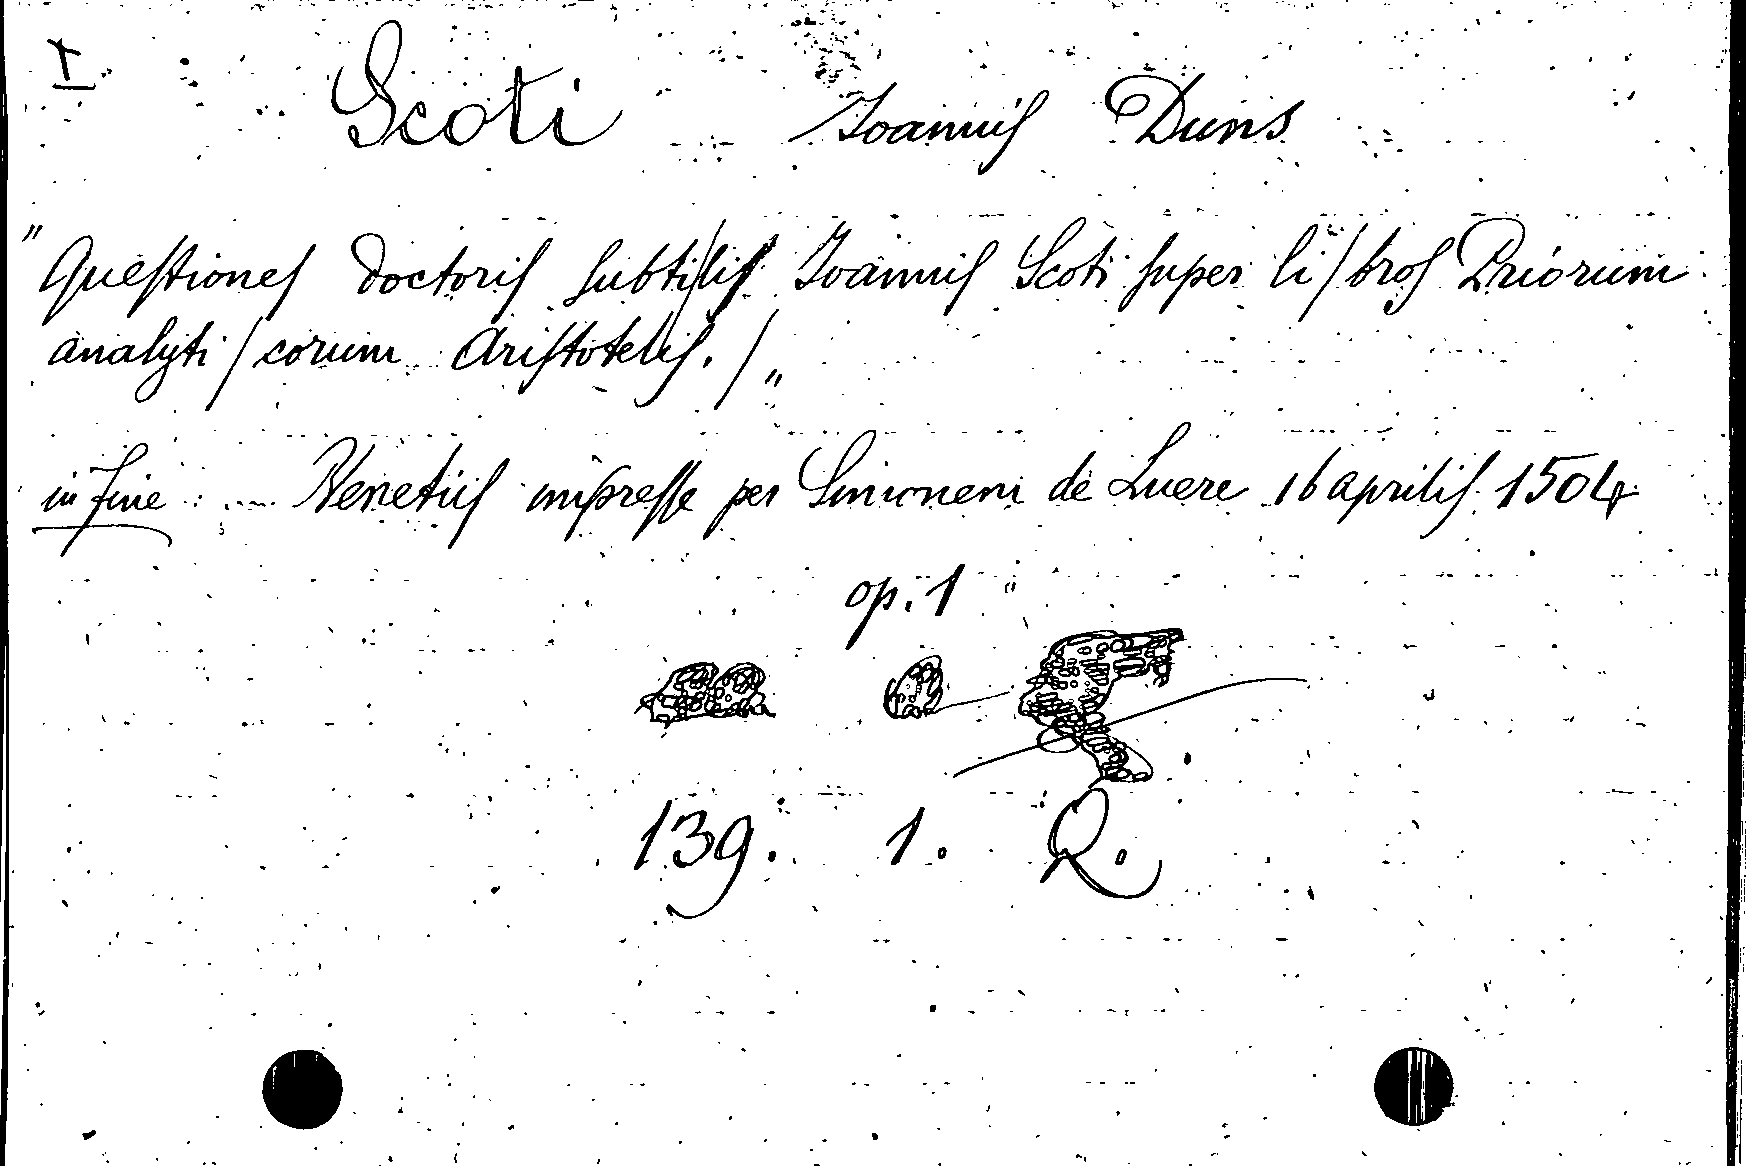 I
Scoti Ioannis Duns
"Questiones doctoris subti/lis Ioannis Scoti super li/bros Priorum
analyti/corum Aristotelis./"
in fine: ... Venetiis impresse per Simonem de Luere 16 aprilis 1504
op. 1
139. 1. Q.